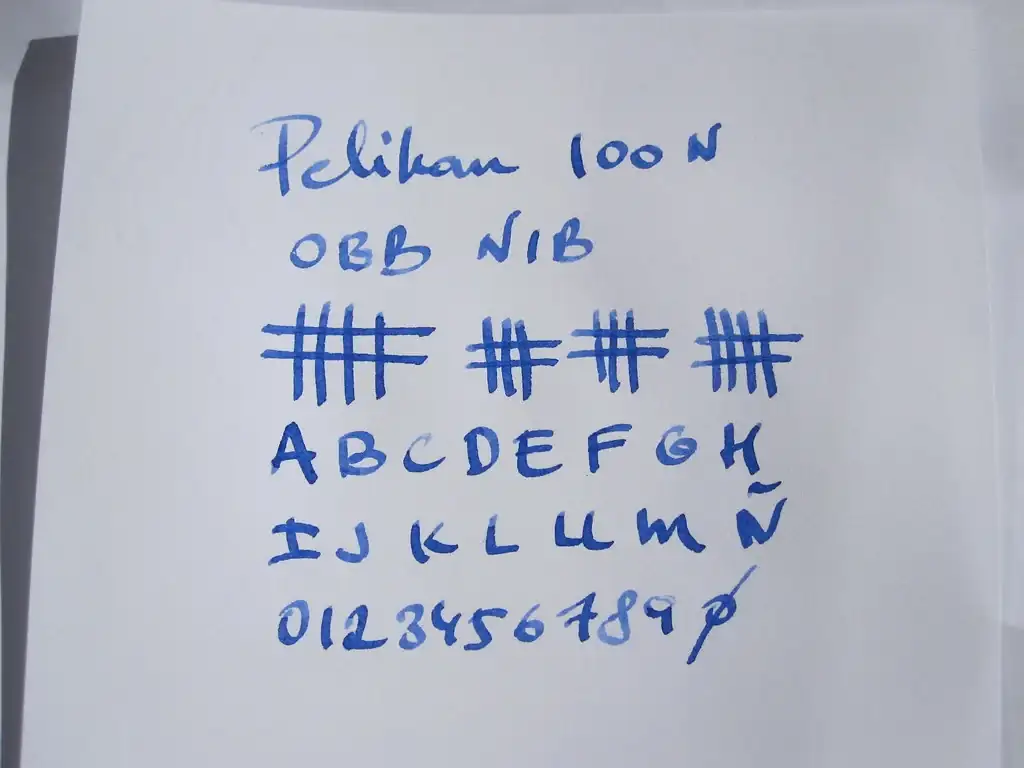 Pelikan 100 N
OBB NIB
A B C D E F G H
I J K L LL M Ñ
0123456789 Ø